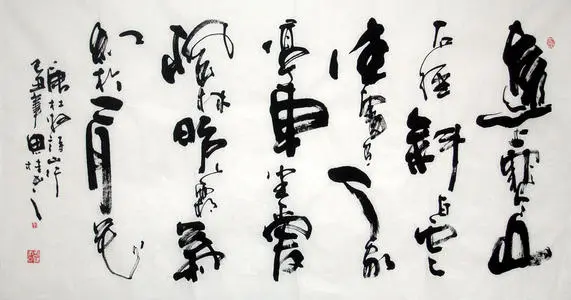 遠上寒山
石徑斜白雲
生處有人家
停車坐愛
楓林晚霜葉
紅於二月花
唐杜牧詩山行